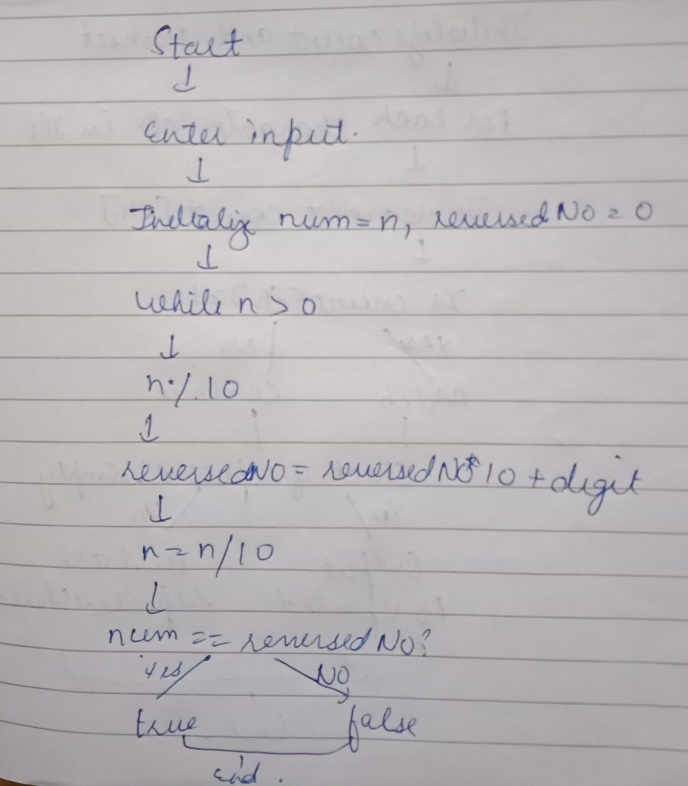 Start
↓
Enter input.
↓
Initialize num = n, reversedNo = 0
↓
while n > 0
↓
n % 10
↓
reversedNo = reversedNo * 10 + digit
↓
n = n/10
↓
num == reversedNo?
yes NO
true false
end.